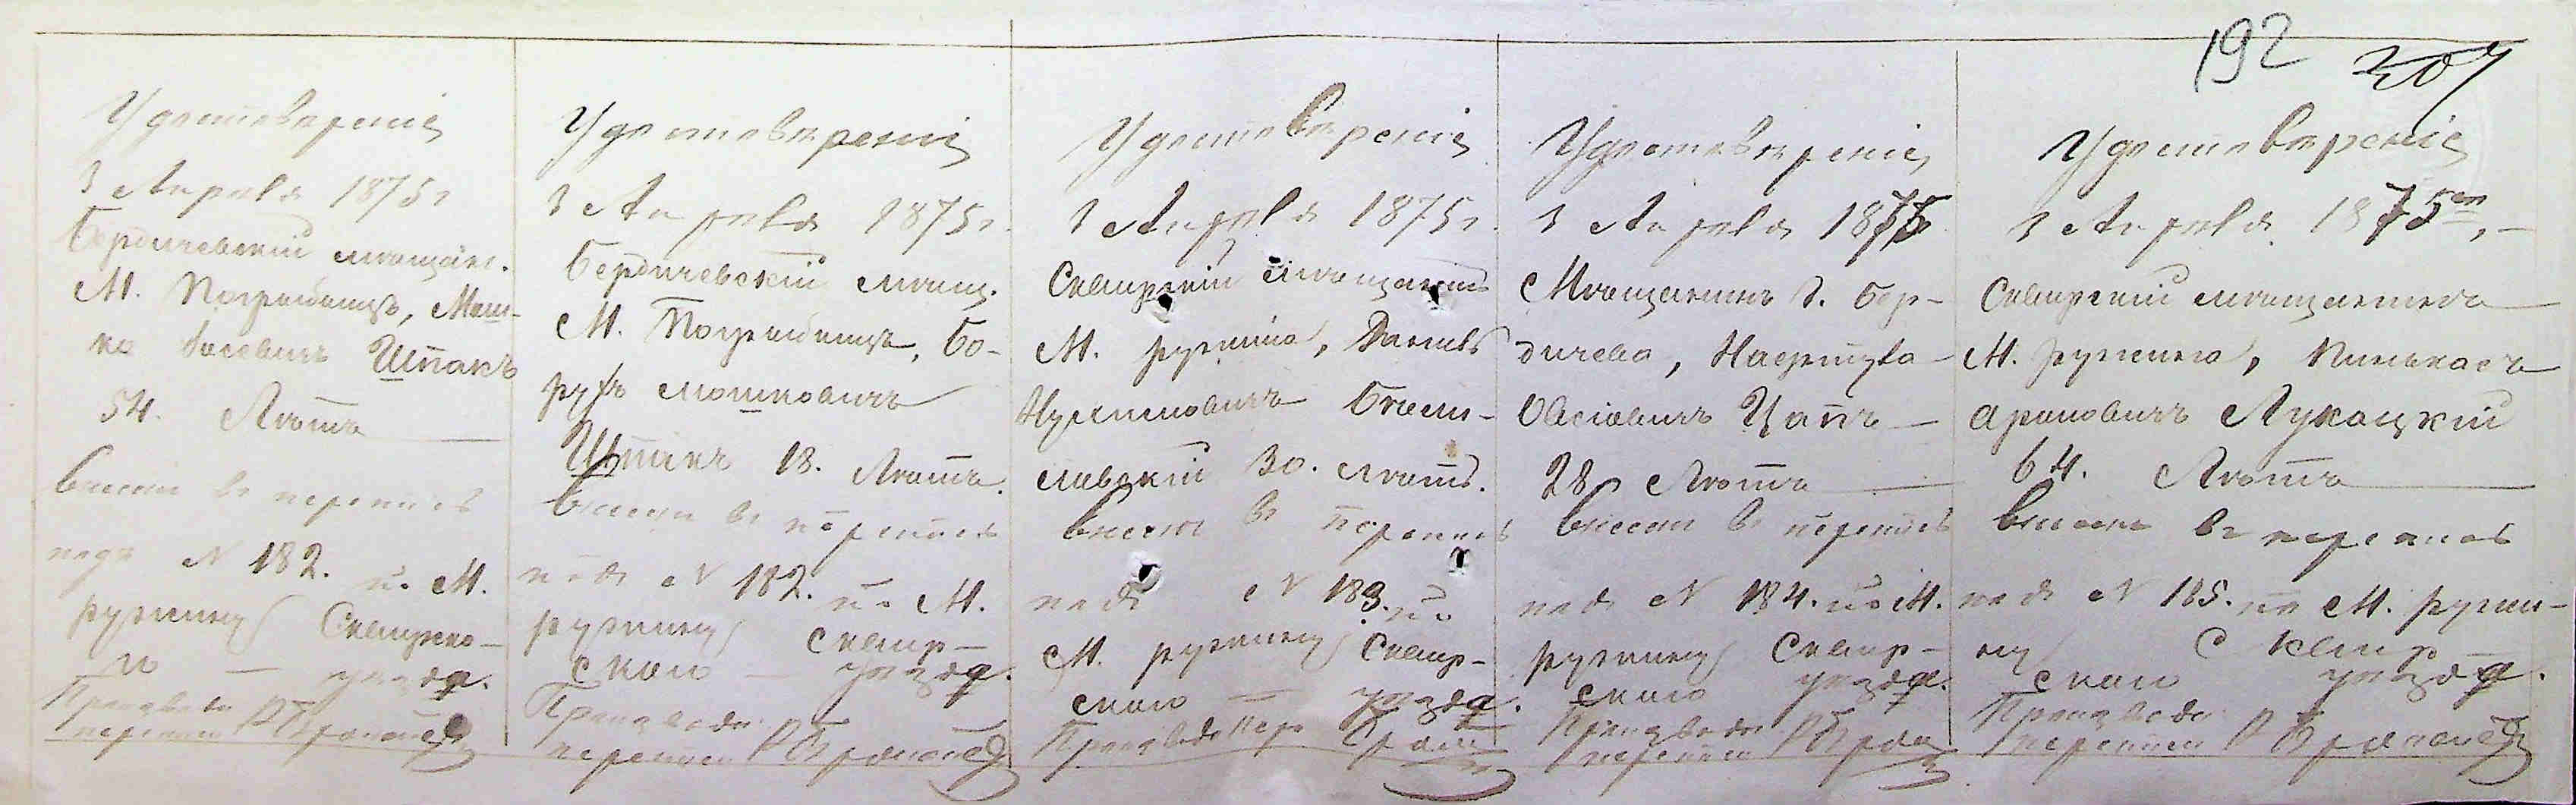 192
307
Удостоверение
3 Апреля 1875 г
Бердичевский мещан.
М. Погребищъ, Мош-
ко Іосевичъ Шпакъ
54. Лѣтъ
внесен в перепись
подъ N 182. по М.
ружину Сквирско-
го уѣзда.
Производ.
переписи
Удостоверение
3 Апреля 1875 г.
Бердичевский мещ.
М. Погребищъ, Бо-
рухъ Мошковичъ
Шпакъ 18. Лѣтъ.
внесен в перепись
под N 182. по М.
ружину Сквир-
скаго уѣзда.
Производ.
переписи
Удостоверение
3 Апреля 1875 г.
Сквирский мещанинъ
М. ружина,
30. Лѣтъ.
внесен в перепись
под N 183. по
М. ружину Сквир-
скаго уѣзда.
Производ. пере
Удостоверение
3 Апреля 1875
Мещанинъ г. Бер-
дичева,
Овсіовичъ Цапъ
28 Лѣтъ
внесен в перепись
под N 184. по М.
ружину Сквир-
скаго уѣзда.
Производ.
переписи
Удостоверение
3 Апреля 1875 го,
Сквирский мещанинъ
М. ружина, Пинькасъ
Ароновичъ Лукацкий
64. Лѣтъ
внесен в перепись
под N 185. по М. ружи-
ну Сквир-
скаго уѣзда.
Производ.
переписи